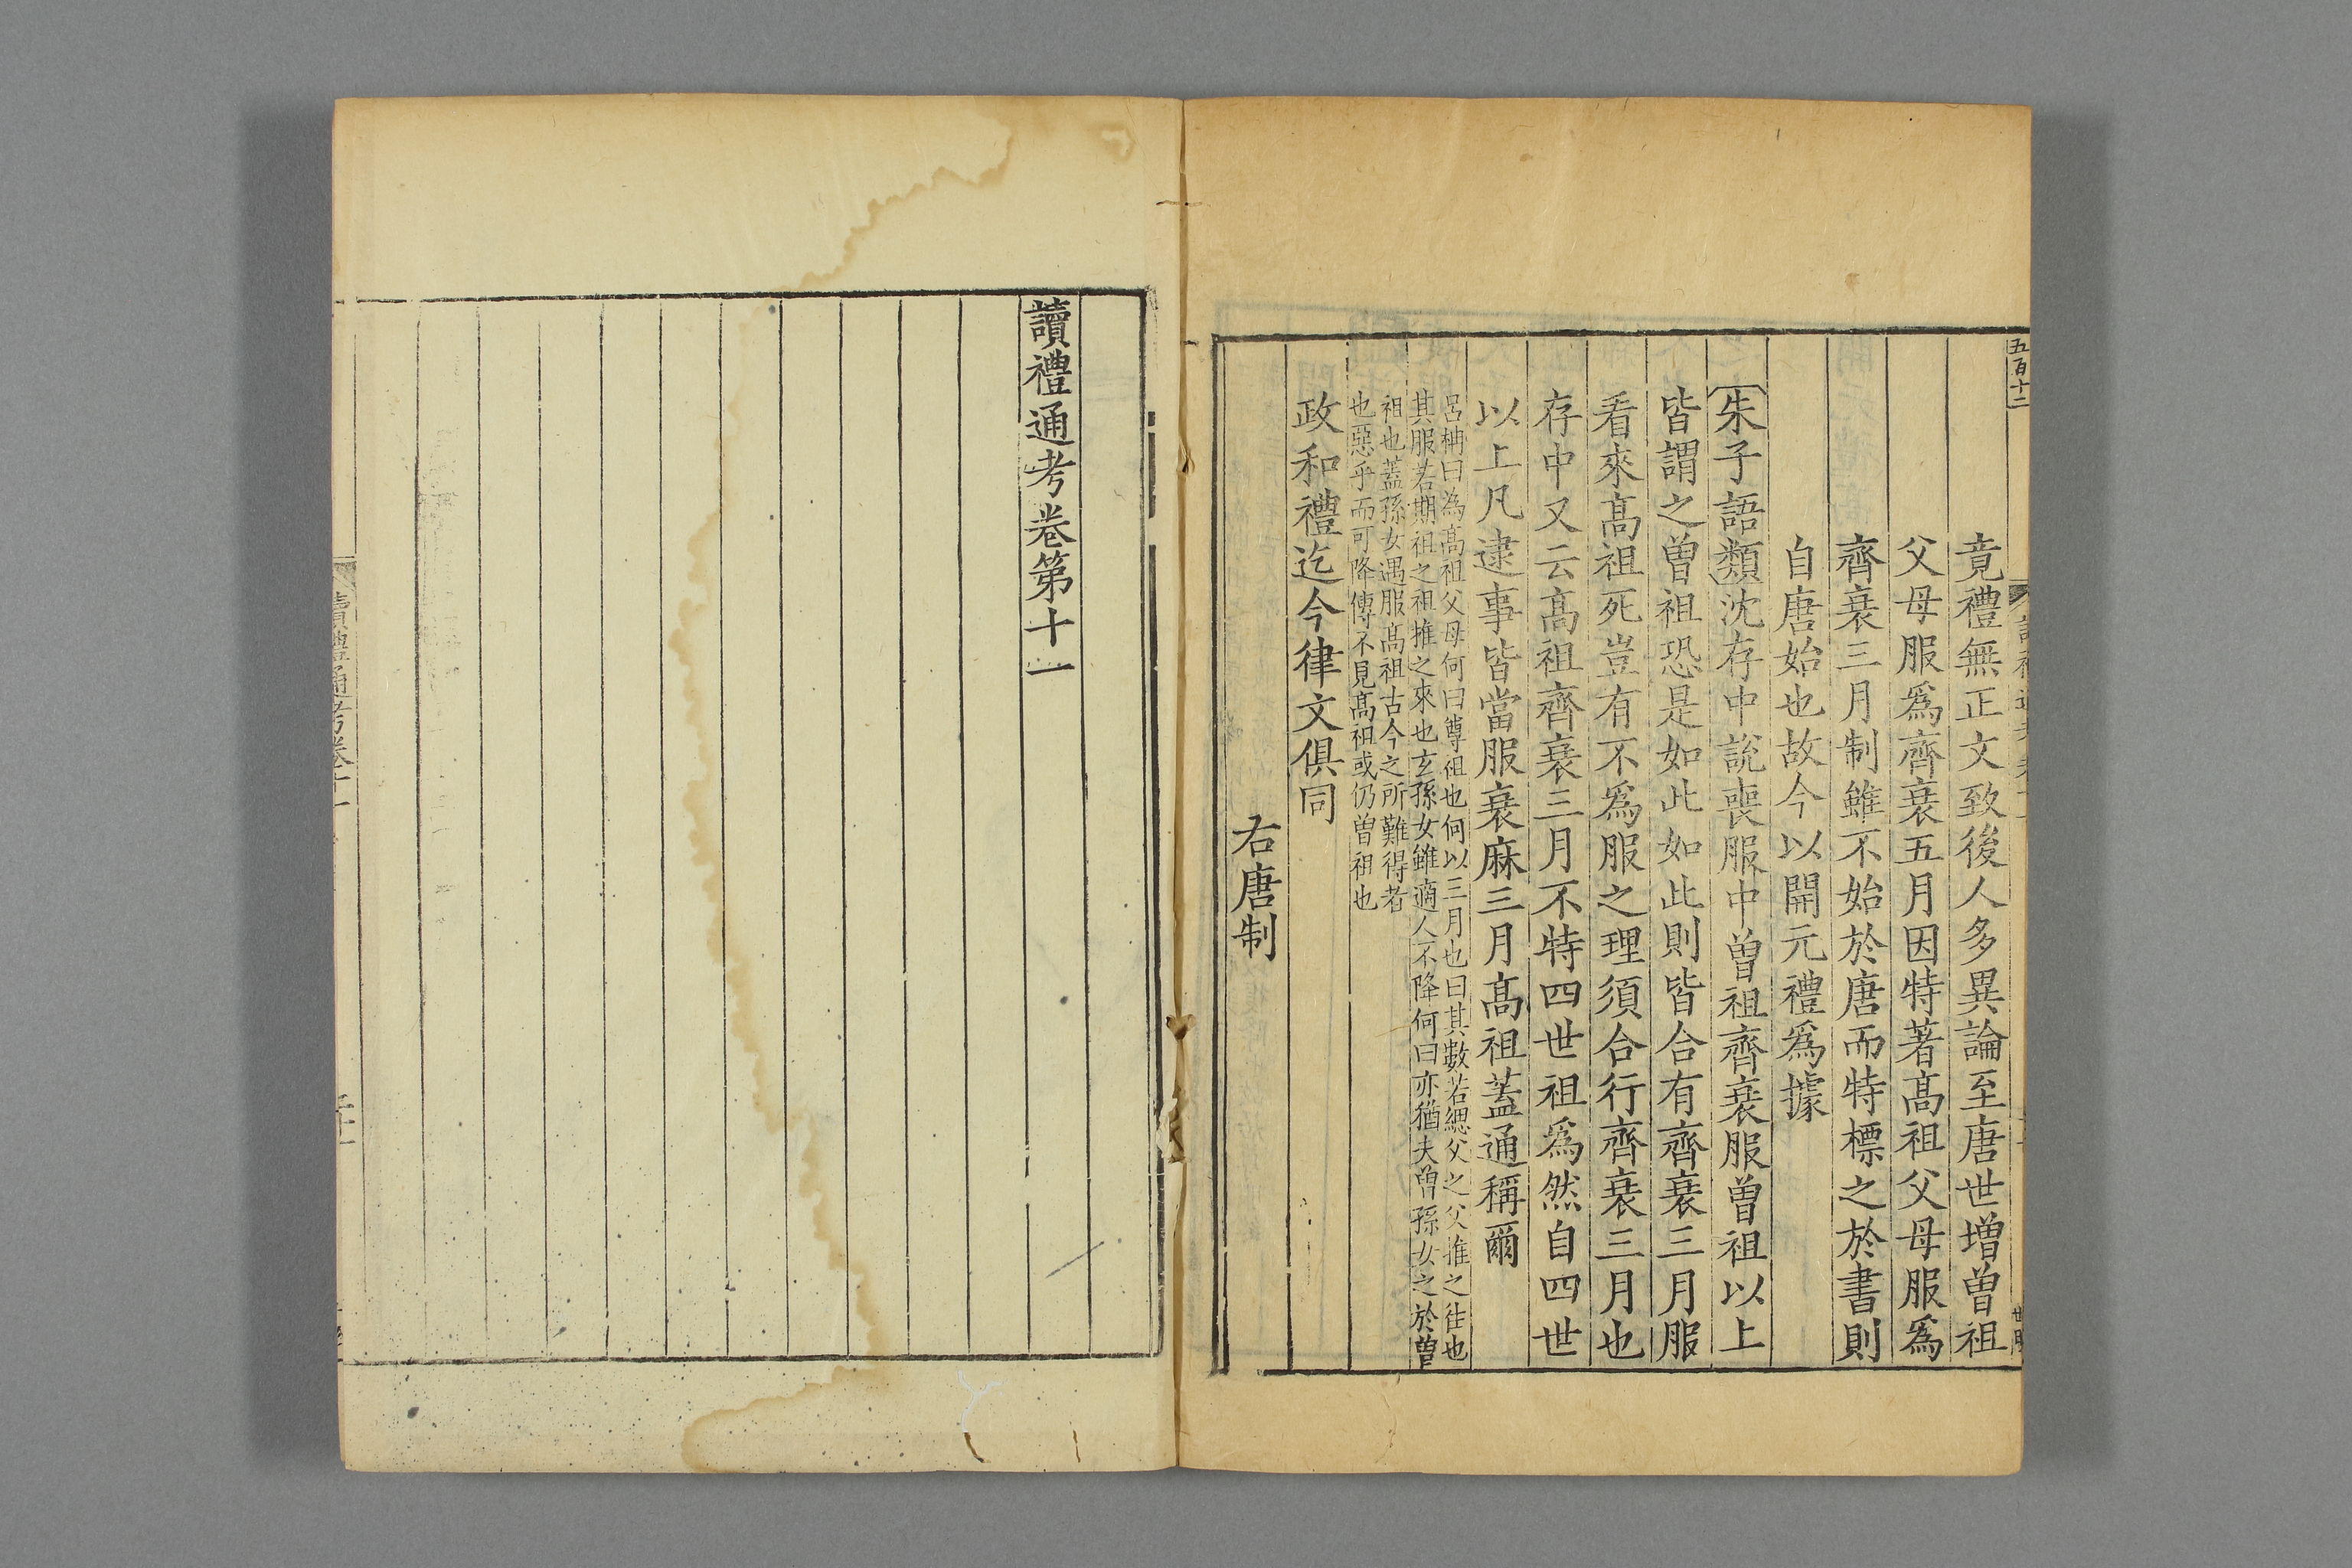 五百十二
竟禮無正文致後人多異論至唐世增曾祖
父母服爲齊衰五月因特著髙祖父母服爲
齊衰三月制雖不始於唐而特標之於書則
自唐始也故今以開元禮爲據
朱子語類沈存中說喪服中曾祖齊衰服曾祖以上
皆謂之曾祖恐是如此如此則皆合有齊衰三月服
看來髙祖死豈有不爲服之理須合行齊衰三月也
存中又云髙祖齊衰三月不特四世祖爲然自四世
以上凡逮事皆當服衰麻三月髙祖蓋通稱爾
呂柟曰為髙祖父母何曰尊祖也何以三月也曰其數若緦父之父推之往也
其服若期祖之祖推之來也玄孫女雖適人不降何曰亦猶夫曾孫女之於曾
祖也蓋孫女遇服髙祖古今之所難得者
也惡乎而可降傳不見髙祖或仍曾祖也
政和禮迄今律文俱同
右唐制
讀禮通考卷第十一
讀禮通考卷十一